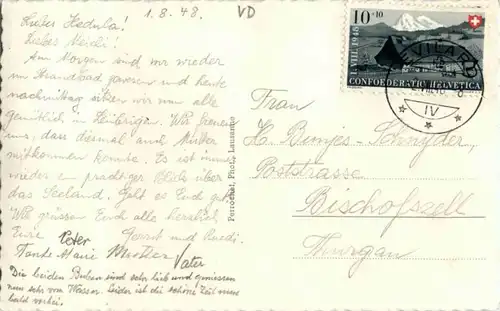 1.8.48.
VD
Liebes Hedula!
Liebes Heidi!
Am Morgen sind wir wieder
im Strandbad gewesen und heute
nachmittag sitzen wir nun alle
gemütlich in Wir freuen
uns, dass diesmal auch Mutter
mitkommen konnte. Es ist immer
wieder ein prächtiger Blick über
das Seeland. Geht es Euch gut?
Wir grüssen Euch alle herzlich
Eure Peter Gerrit und Ruedi.
Tante Marie Mutter Vater
Die beiden Buben sind sehr lieb und geniessen
nun sehr vom Wasser. Leider ist die schöne Zeit nun
bald vorbei.
Perrochet, Phot., Lausanne
10+10
1.VIII.1948
CONFOEDERATIO HELVETICA
EVILARD
IV
Frau
H. Bunjes-Schnyder,
Poststrasse
Bischofszell
Thurgau